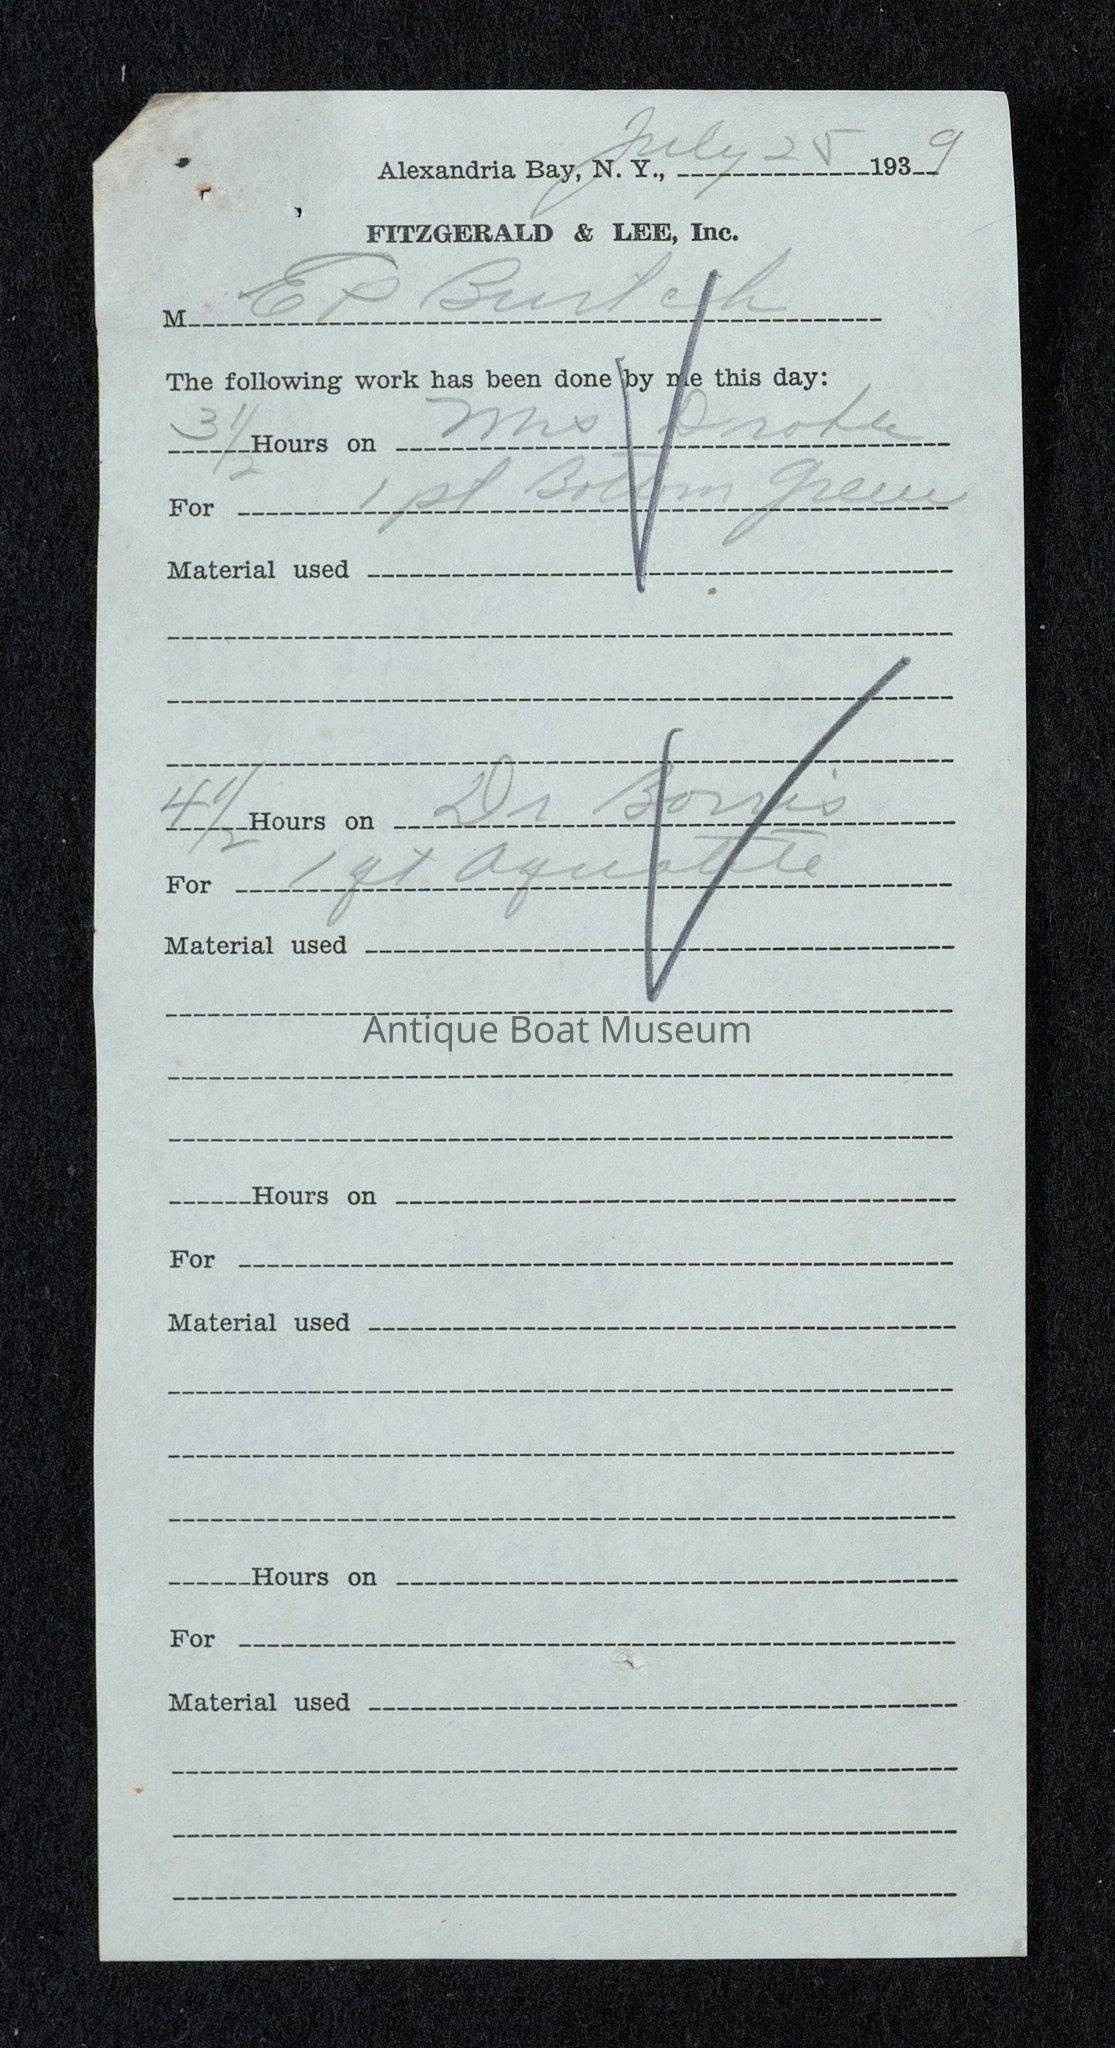 Alexandria Bay, N. Y., July 25 1939
FITZGERALD & LEE, Inc.
M E P
The following work has been done by me this day:
3 1/2 Hours on Mrs
For 1 pt Bottom Green
Material used
4 1/2 Hours on Dr
For 1 qt
Material used
Antique Boat Museum
Hours on
For
Material used
Hours on
For
Material used